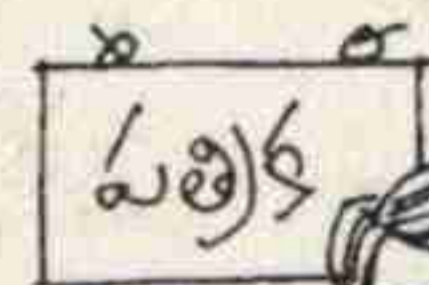 పత్రిక